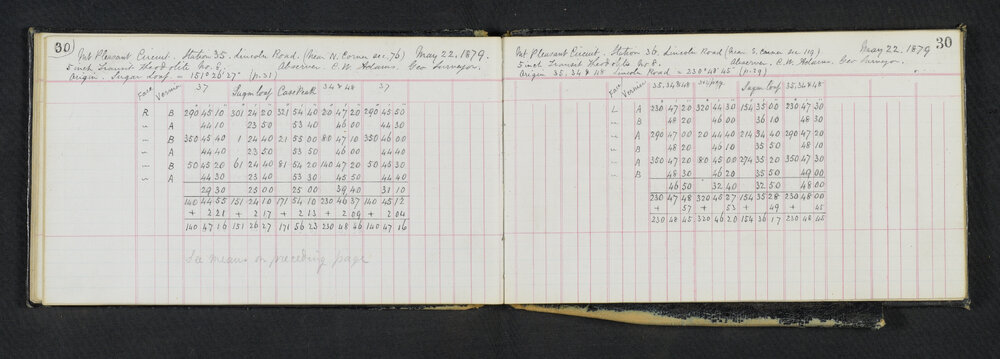 30
Mt Pleasant Circuit. Station 35. Lincoln Road. (Near N. Corner sec. 76) May 22. 1879.
5 inch Transit Theodolite No. 8. Observer. C. W. Adams. Geo Surveyor.
Origin. Sugar Loaf. = 151° 26' 27" (p.21)
Face Vernier 37 Sugar loaf Case Peak 34 & 48 37
R B 290 45 10 301 24 20 321 54 40 20 47 20 290 45 50
" A 44 10 23 50 53 40 46 00 44 30
" B 350 45 40 1 24 40 21 55 00 80 47 10 350 46 00
" A 44 40 23 50 53 50 46 00 44 40
" B 50 45 20 61 24 40 81 54 20 140 47 20 50 45 30
" A 44 30 23 40 53 30 45 50 44 40
29 30 25 00 25 00 39 40 31 10
140 44 55 151 24 10 171 54 10 230 46 37 140 45 12
+ 2 21 + 2 17 + 2 13 + 2 09 + 2 04
140 47 16 151 26 27 171 56 23 230 48 46 140 47 16
See means on preceding page
30
Mt Pleasant Circuit. Station 36. Lincoln Road (Near S. Corner sec 119) May 22. 1879
5 inch Transit Theodolite No 8. Observer. C. W. Adams. Geo Surveyor.
Origin 35, 34 & 48 Lincoln Road = 230° 48' 45" (p.29)
Face Vernier 35, 34 & 48 Sugar loaf 35, 34 & 48
L A 230 47 20 320 44 30 154 35 00 230 47 20
" B 48 20 46 00 36 10 48 30
" A 290 47 00 20 44 40 214 34 40 290 47 20
" B 48 20 46 10 35 50 48 10
" A 350 47 20 80 45 00 274 35 20 350 47 30
" B 48 30 46 20 35 50 49 00
46 50 32 40 32 50 48 00
230 47 48 320 45 27 154 35 28 230 48 00
+ 57 + 53 + 49 + 45
230 48 45 320 46 20 154 36 17 230 48 45